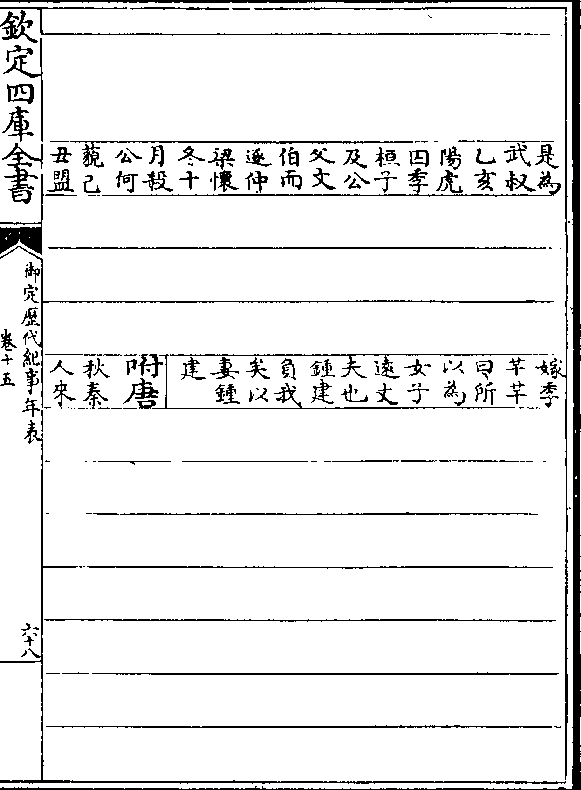 是為
武叔
乙亥
陽虎
囚季
桓子
及公
父文
伯而
逐仲
梁懷
冬十
月殺
公何
藐己
丑盟
嫁季
芊芊
曰所
以為
女子
遠丈
夫也
鍾建
負我
矣以
妻鍾
建
附唐
秋秦
人來
欽定四庫全書
御定歷代紀事年表
卷十五
六十八